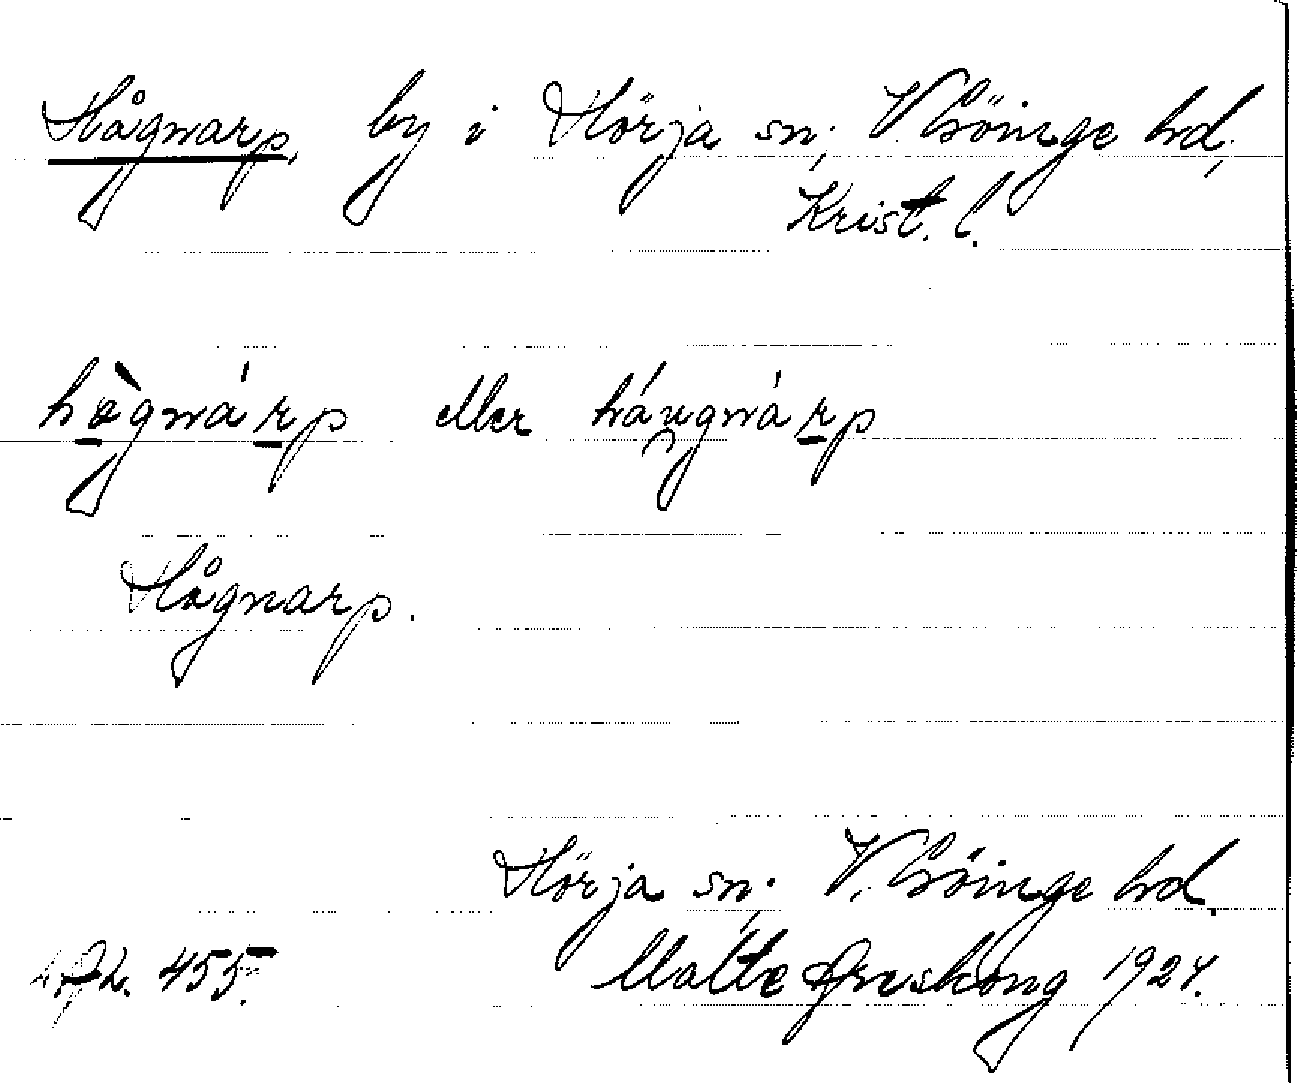 Hågnarp, by i Hörja sn; V. Göinge hd;
Krist. l.
hògnárp eller háŋgnárp
Hågnarp.
Hörja sn; V. Göinge hd.
455. Malte 1924.